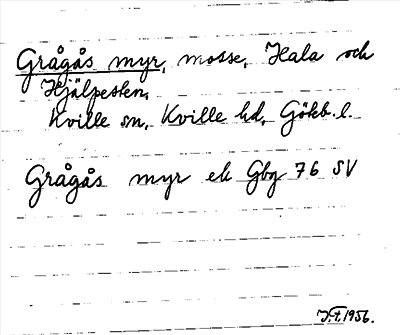 Grågås myr, mosse, Hala och
Hjälpesten,
Kville sn, Kville hd, Götebr. l.
Grågås myr ek Gbg 76 SV
J.t. 1956.